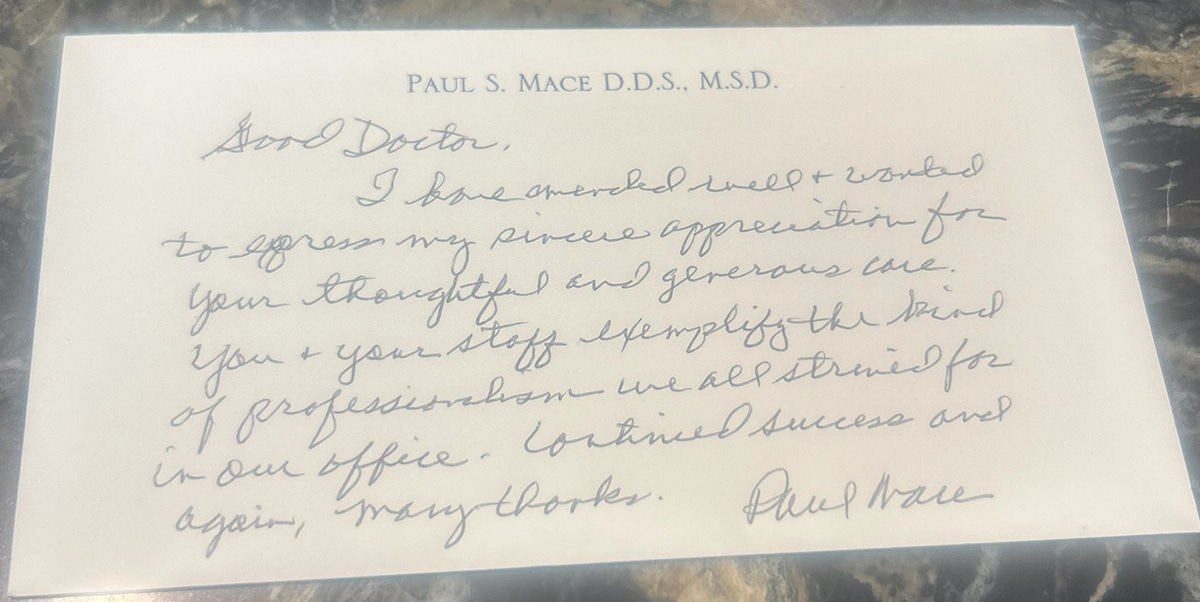 PAUL S. MACE D.D.S., M.S.D.
Good Doctor,
I have mended well + wanted
to express my sincere appreciation for
your thoughtful and generous care.
You + your staff exemplify the kind
of professionalism we all strived for
in our office. Continued success and
again, many thanks. Paul Mace